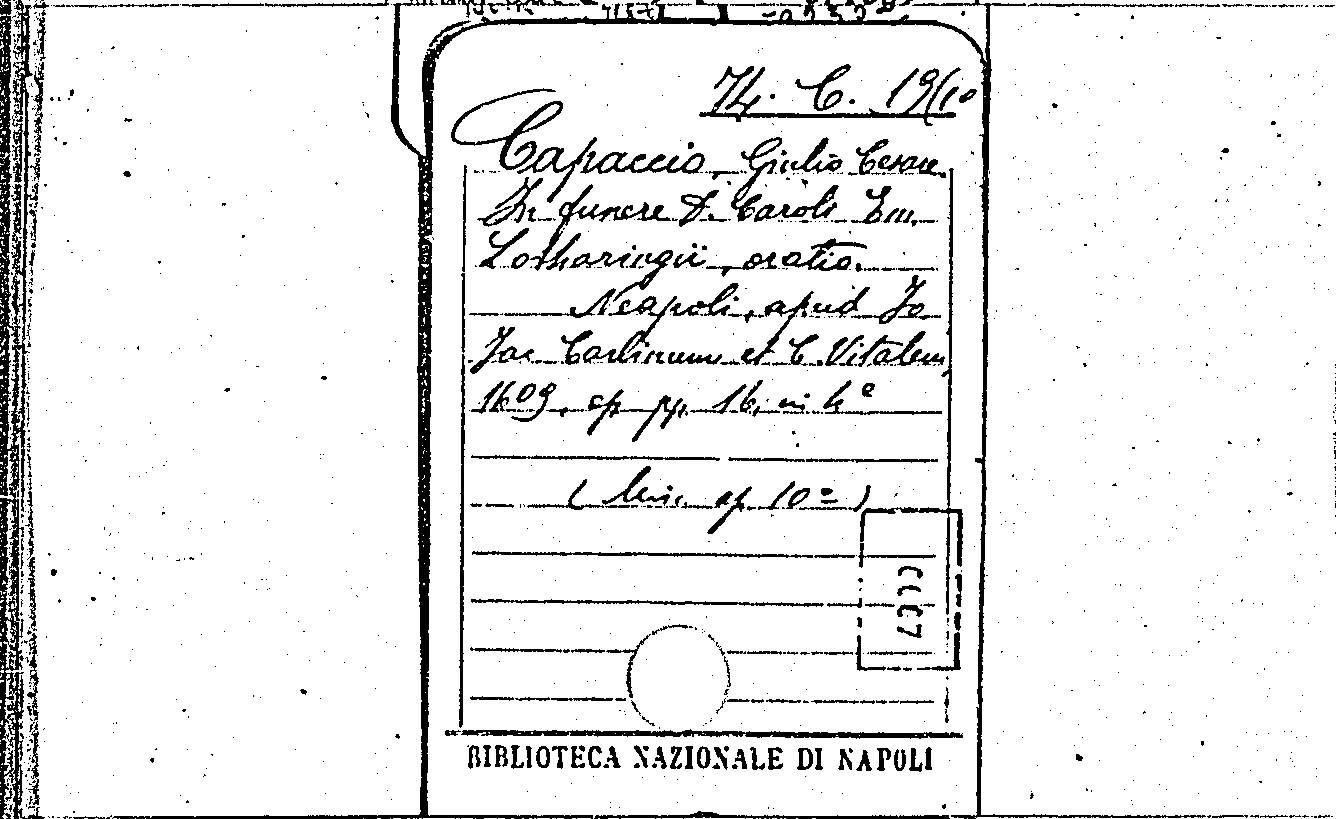 74. C. 19(10
Capaccio, Giulio Cesare.
In funere D. Caroli Em.
Lotharingii, oratio.
Neapoli, apud Jo
Jac Carlinum et C. Vitalem
1609. op pp. 16, in 4º
(Misc. op 10º)
BIBLIOTECA NAZIONALE DI NAPOLI